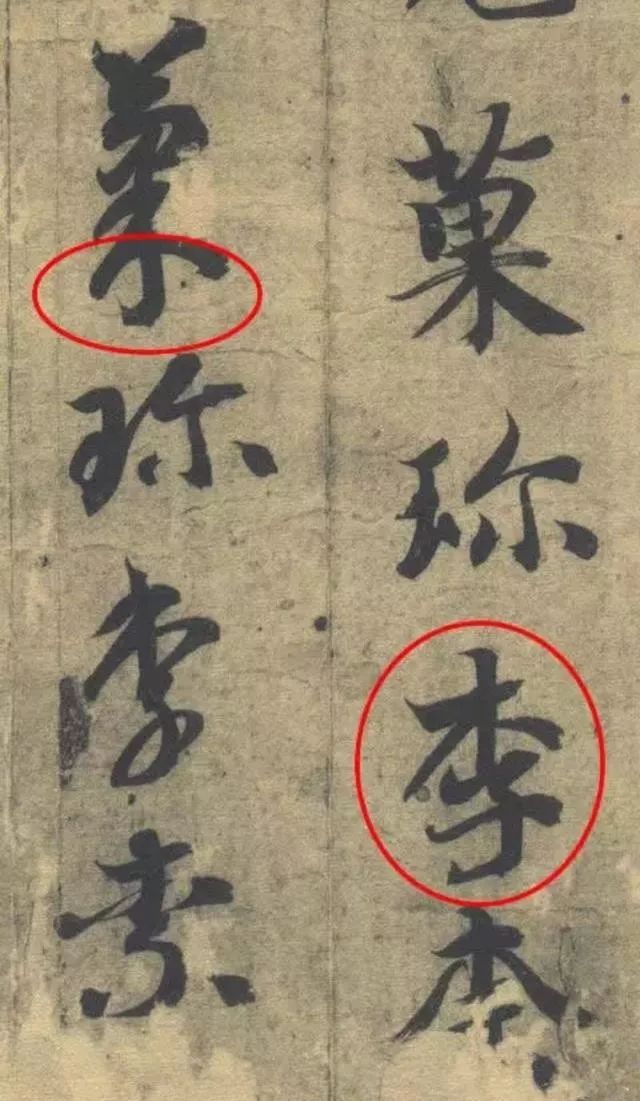 菓珍李柰
菓珍李柰